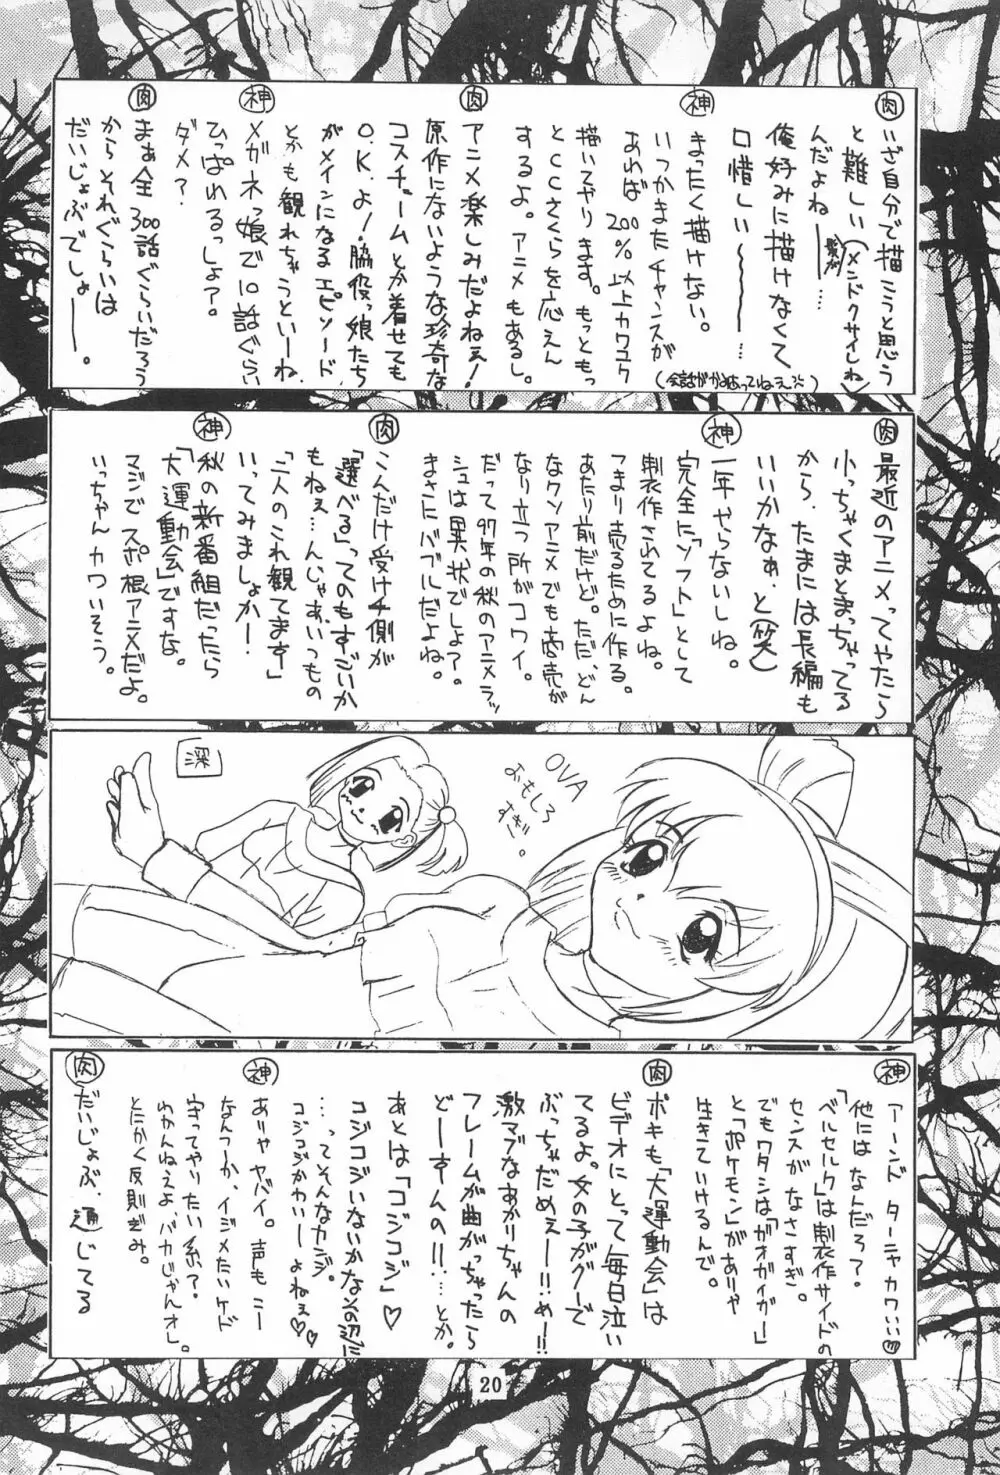 肉
いざ自分で描こうと思う
と難しい(メンドクサイしね)
んだよね――……
髪が
俺好みに描けなくて
口惜しい〜〜〜…
神
まったく描けない。
いつかまたチャンスが
あれば200%以上カワユク
描いてやります。もっともっ
とCCさくらを応えん
するよ。アニメもあるし。
(会話がかみ合ってねえ
肉
アニメ楽しみだよねぇ!
原作にないような珍奇な
コスチュームとか着せても
O.K.よ!脇役っ娘たち
がメインになるエピソード
とかも観れちゃうといーね
神
メガネっ娘で10話ぐらい
ひっぱれるっしょ?
ダメ?
肉
まぁ全300話ぐらいだろう
からそれぐらいは
だいじょぶでしょ――。
肉
最近のアニメってやたら
小っちゃくまとまっちゃってる
から、たまには長編も
いいかなぁ、と(笑)
神
一年やらないしね。
完全に「ソフト」として
製作されてるよね。
つまり売るために作る。
あたり前だけど。ただ、どん
なクソアニメでも商売が
なり立つ所がコワイ。
だって97年の秋のアニメラッ
シュは異状でしょ?
まさにバブルだよね。
肉
こんだけ受け手側が
「選べる」ってのもすごいか
もねぇ…んじゃあ、いつもの
「二人のこれ観てます」
いってみましょか―!
神
秋の新番組だったら
「大運動会」ですな。
マジでスポ根アニメだよ。
いっちゃんカワいそう。
深
OVA
おもしろ
すぎ。
神
アーンド ターニャカワいい♡
他にはなんだろ?
「ベルセルク」は製作サイドの
センスがなさすぎ。
でもワタシは「ガオガイガー」
と「ポケモン」がありゃ
生きていけるんで。
肉
ボキも「大運動会」は
ビデオにとって毎日泣い
てるよ。女の子がグーで
ぶっちゃだめぇ――!!め――!!
激マブなあかりちゃんの
フレームが曲がっちゃったら
どーすんの!!…とか。
あとは「コジコジ」♡
コジコジいないかなその辺に
…ってそんなカンジ。
コジコジかわいーよねぇ♡♡
神
ありゃヤバイ。声もこー
なんつーか、イジメたいケド
守ってやりたい系?
わかんねえよ、バカじゃんオレ。
とにかく反則ぎみ。
肉
だいじょぶ、通じてる
20